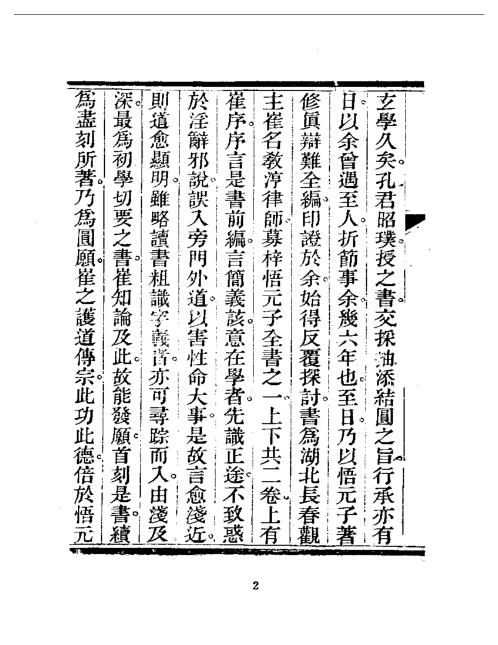 玄學久矣。孔君昭璞。授之書。交採抽添結圓之旨。行承亦有
日。以余曾遇至人。折節事余。幾六年也。至日。乃以悟元子著
修眞辯難全編。印證於余。始得反覆探討。書爲湖北長春觀
主崔名敎淳律師。募梓悟元子全書之一。上下共二卷。上有
崔序。序言是書前編。言簡義該。意在學者。先識正途。不致惑
於淫辭邪說。誤入旁門外道。以害性命大事。是故言愈淺近。
則道愈顯明。雖略讀書粗識字義者。亦可尋踪而入。由淺及
深。最爲初學切要之書。崔知論及此。故能發願。首刻是書。續
爲盡刻所著。乃爲圓願。崔之護道傳宗。此功此德。倍於悟元
2